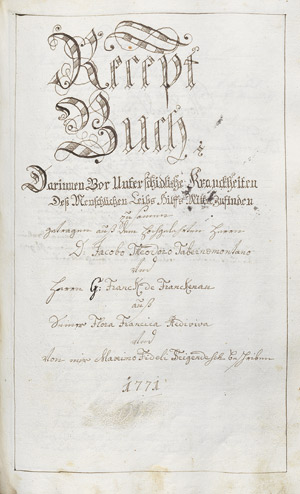 Recept
Buch
Darinnen Vor Unterschidliche Kranckheiten
Deß Menschlichen Leibs Hülffs Mittel Zufinden
zusamen
getragen auß dem Hochgelehrten Herrn
D. Jacobo Theodoro Tabernemontano
und
Herrn G: Franck de Franckenau
auß
Seiner Flora Francica Rediviva
und
Von mir Maximo Fideli
1771